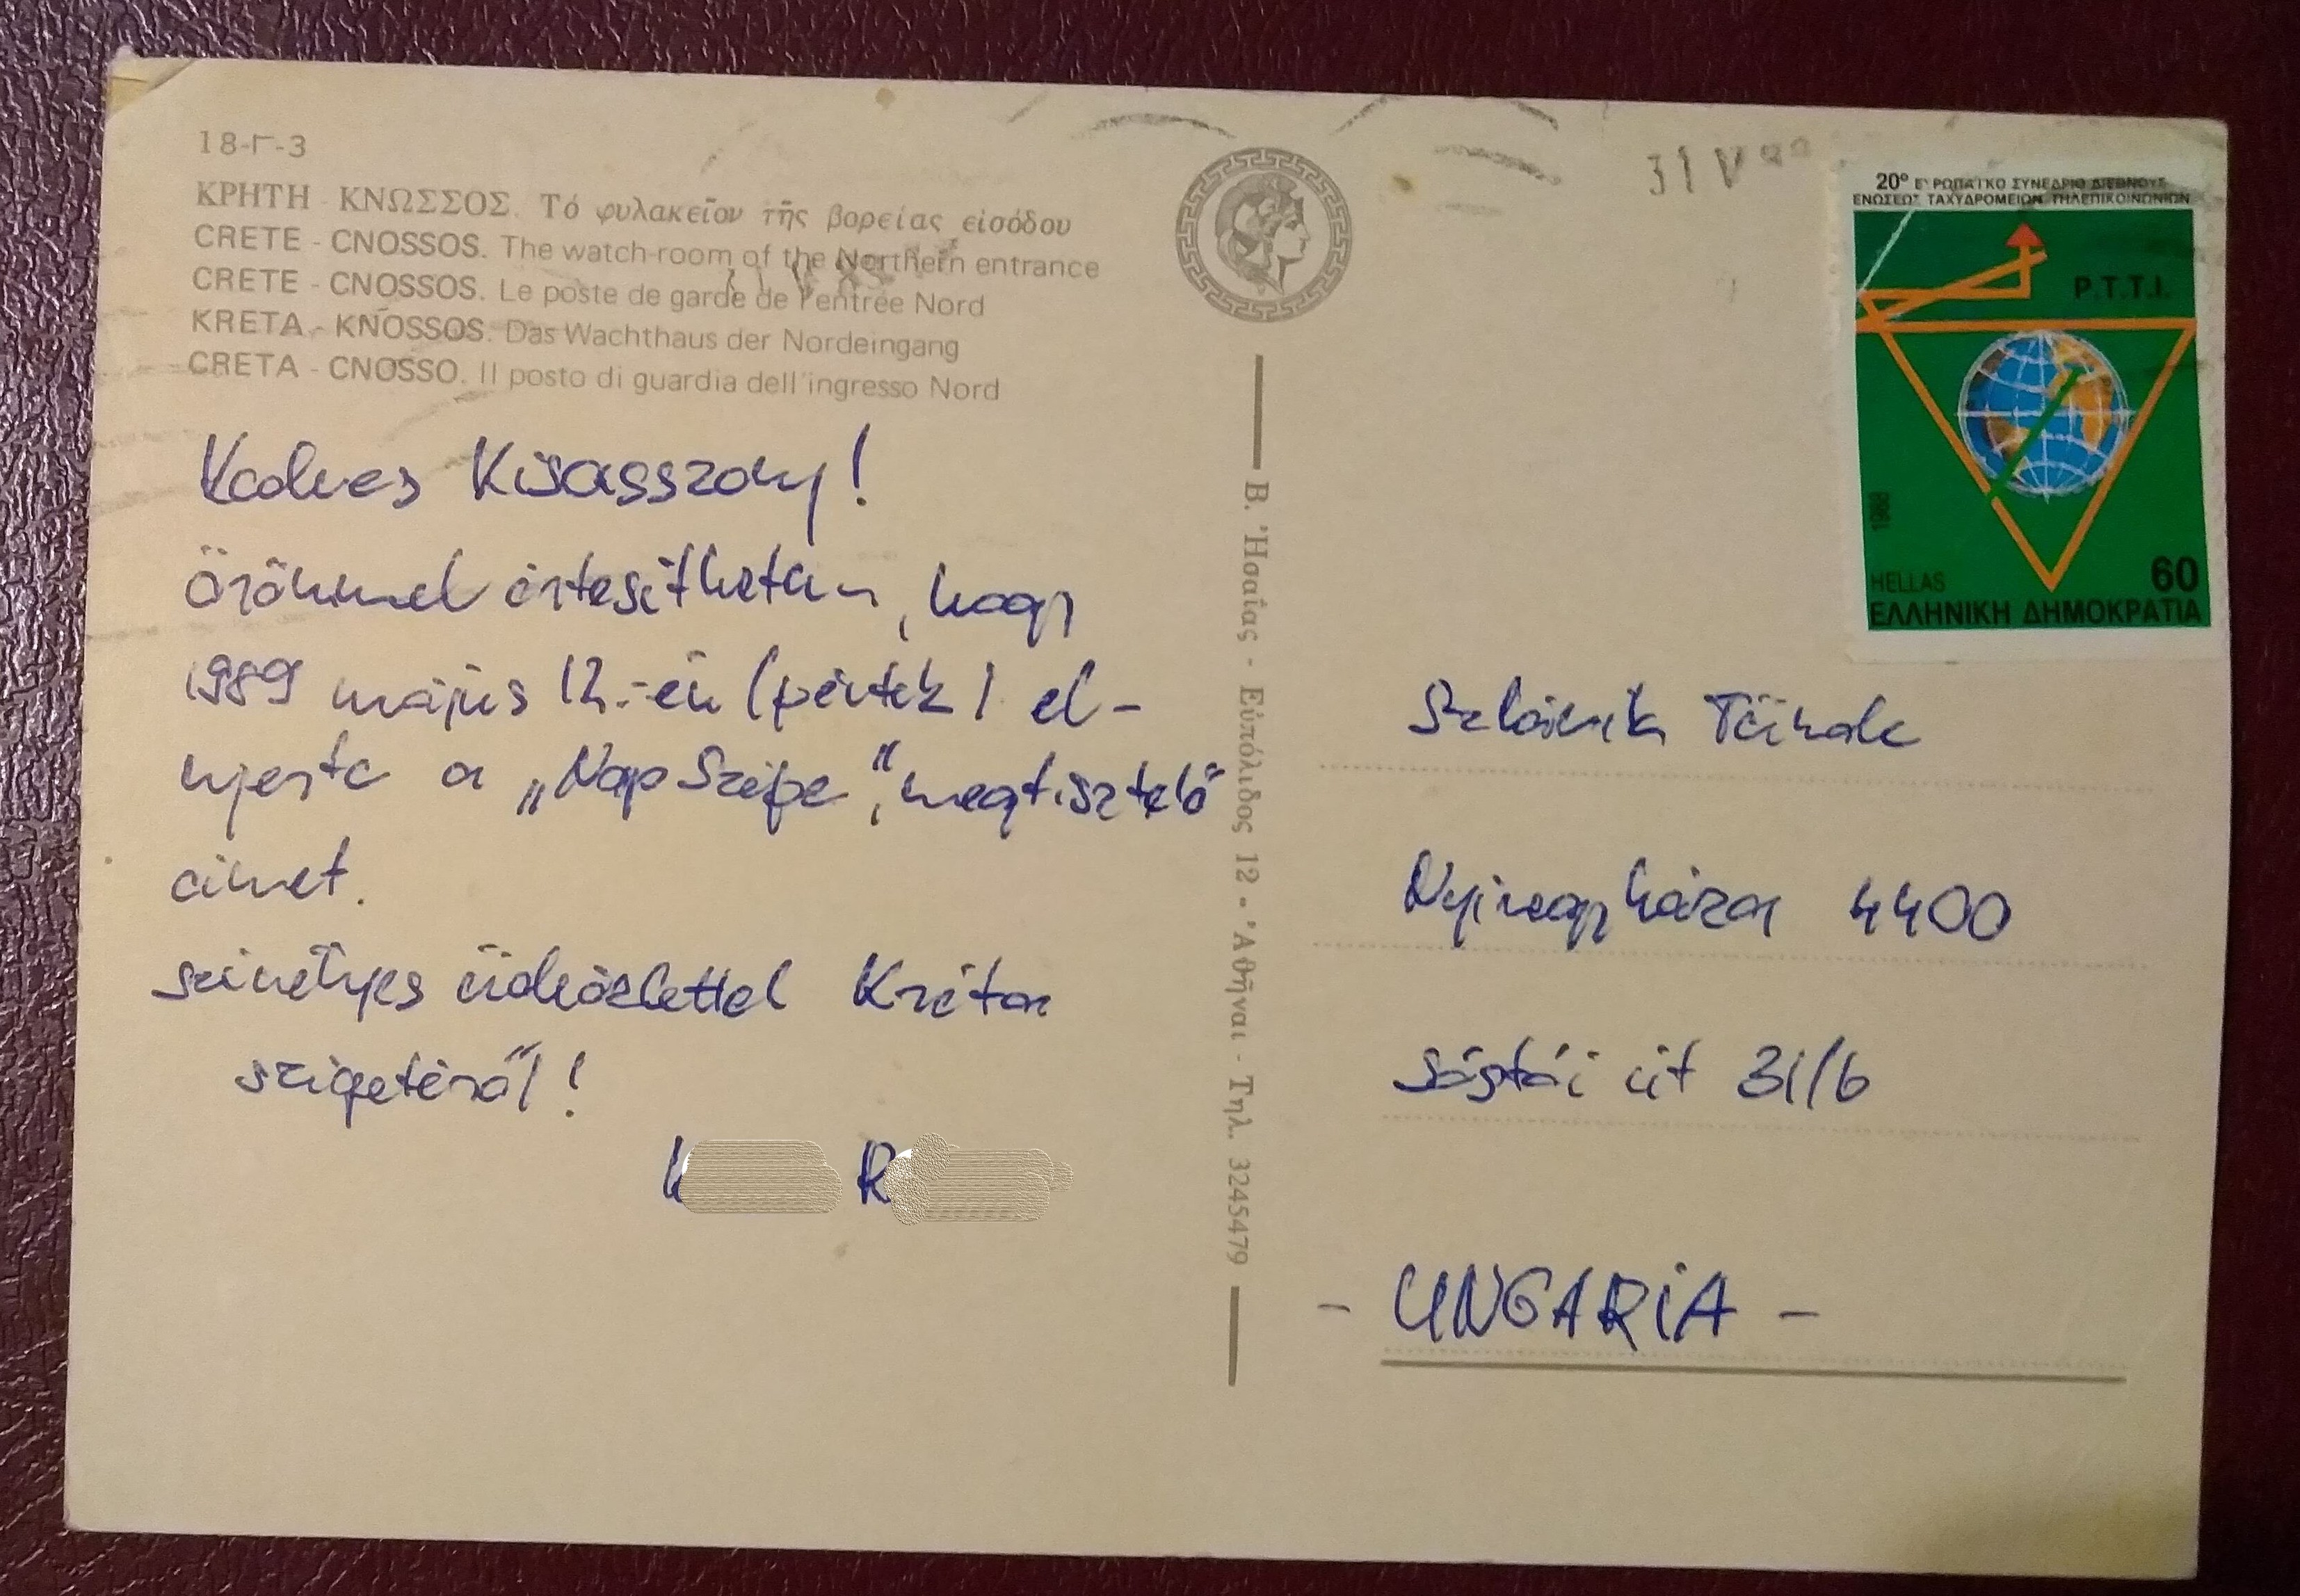 18-Γ-3
ΚΡΗΤΗ - ΚΝΩΣΣΟΣ. Τό φυλακεῖον τῆς βορείας εἰσόδου
CRETE - CNOSSOS. The watch-room of the Northern entrance
CRETE - CNOSSOS. Le poste de garde de l'entrée Nord
KRETA - KNOSSOS. Das Wachthaus der Nordeingang
CRETA - CNOSSO. Il posto di guardia dell'ingresso Nord
Kedves Kisasszony!
Örömmel értesíthetem, hogy
1989 május 12.-én (péntek) el-
nyerte a „Nap Szépe", megtisztelő
címet.
színélyes üdvözlettel Kréta
szigetéről!
K R
Β. Ἡσαΐας - Εὐπόλιδος 12 - Ἀθῆναι - Τηλ. 3245479
31 V
20º ΕΥΡΩΠΑΪΚΟ ΣΥΝΕΔΡΙΟ ΔΙΕΘΝΟΥΣ
ΕΝΩΣΕΩΣ ΤΑΧΥΔΡΟΜΕΙΩΝ ΤΗΛΕΠΙΚΟΙΝΩΝΙΩΝ
P.T.T.I.
1988
60
HELLAS
ΕΛΛΗΝΙΚΗ ΔΗΜΟΚΡΑΤΙΑ
Szlávik Tünde
Nyíregyháza 4400
Sóstói út 31/b
- UNGARIA -